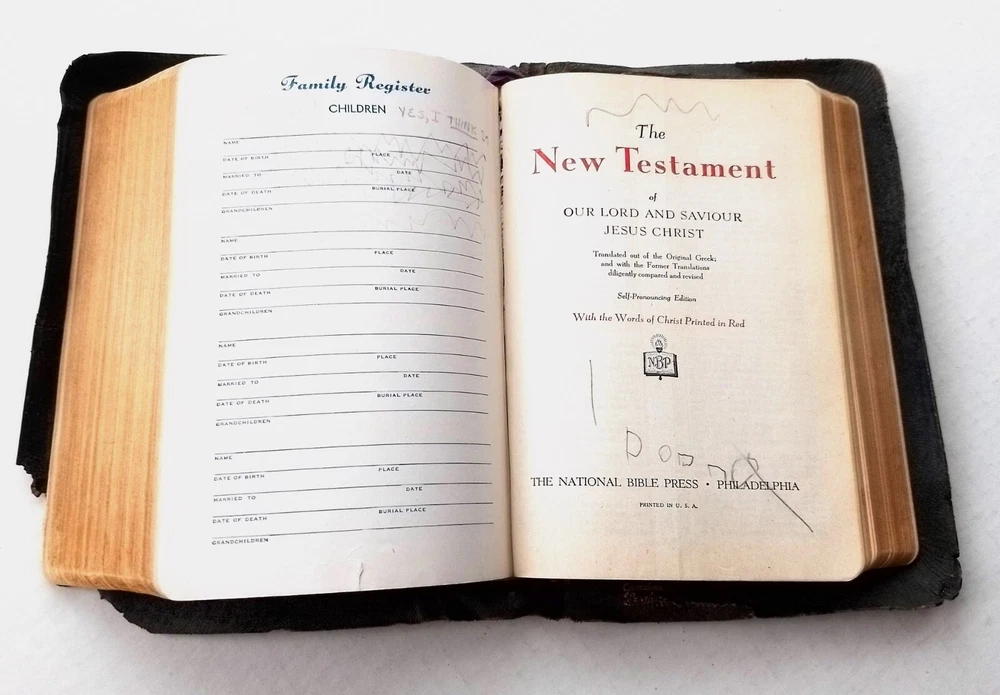 Family Register
CHILDREN YES, I THINK SO
NAME
DATE OF BIRTH PLACE
MARRIED TO DATE
DATE OF DEATH BURIAL PLACE
GRANDCHILDREN
NAME
DATE OF BIRTH PLACE
MARRIED TO DATE
DATE OF DEATH BURIAL PLACE
GRANDCHILDREN
NAME
DATE OF BIRTH PLACE
MARRIED TO DATE
DATE OF DEATH BURIAL PLACE
GRANDCHILDREN
NAME
DATE OF BIRTH PLACE
MARRIED TO DATE
DATE OF DEATH BURIAL PLACE
GRANDCHILDREN
The
New Testament
of
OUR LORD AND SAVIOUR
JESUS CHRIST
Translated out of the Original Greek;
and with the Former Translations
diligently compared and revised
Self-Pronouncing Edition
With the Words of Christ Printed in Red
NBP
Donna
THE NATIONAL BIBLE PRESS • PHILADELPHIA
PRINTED IN U. S. A.